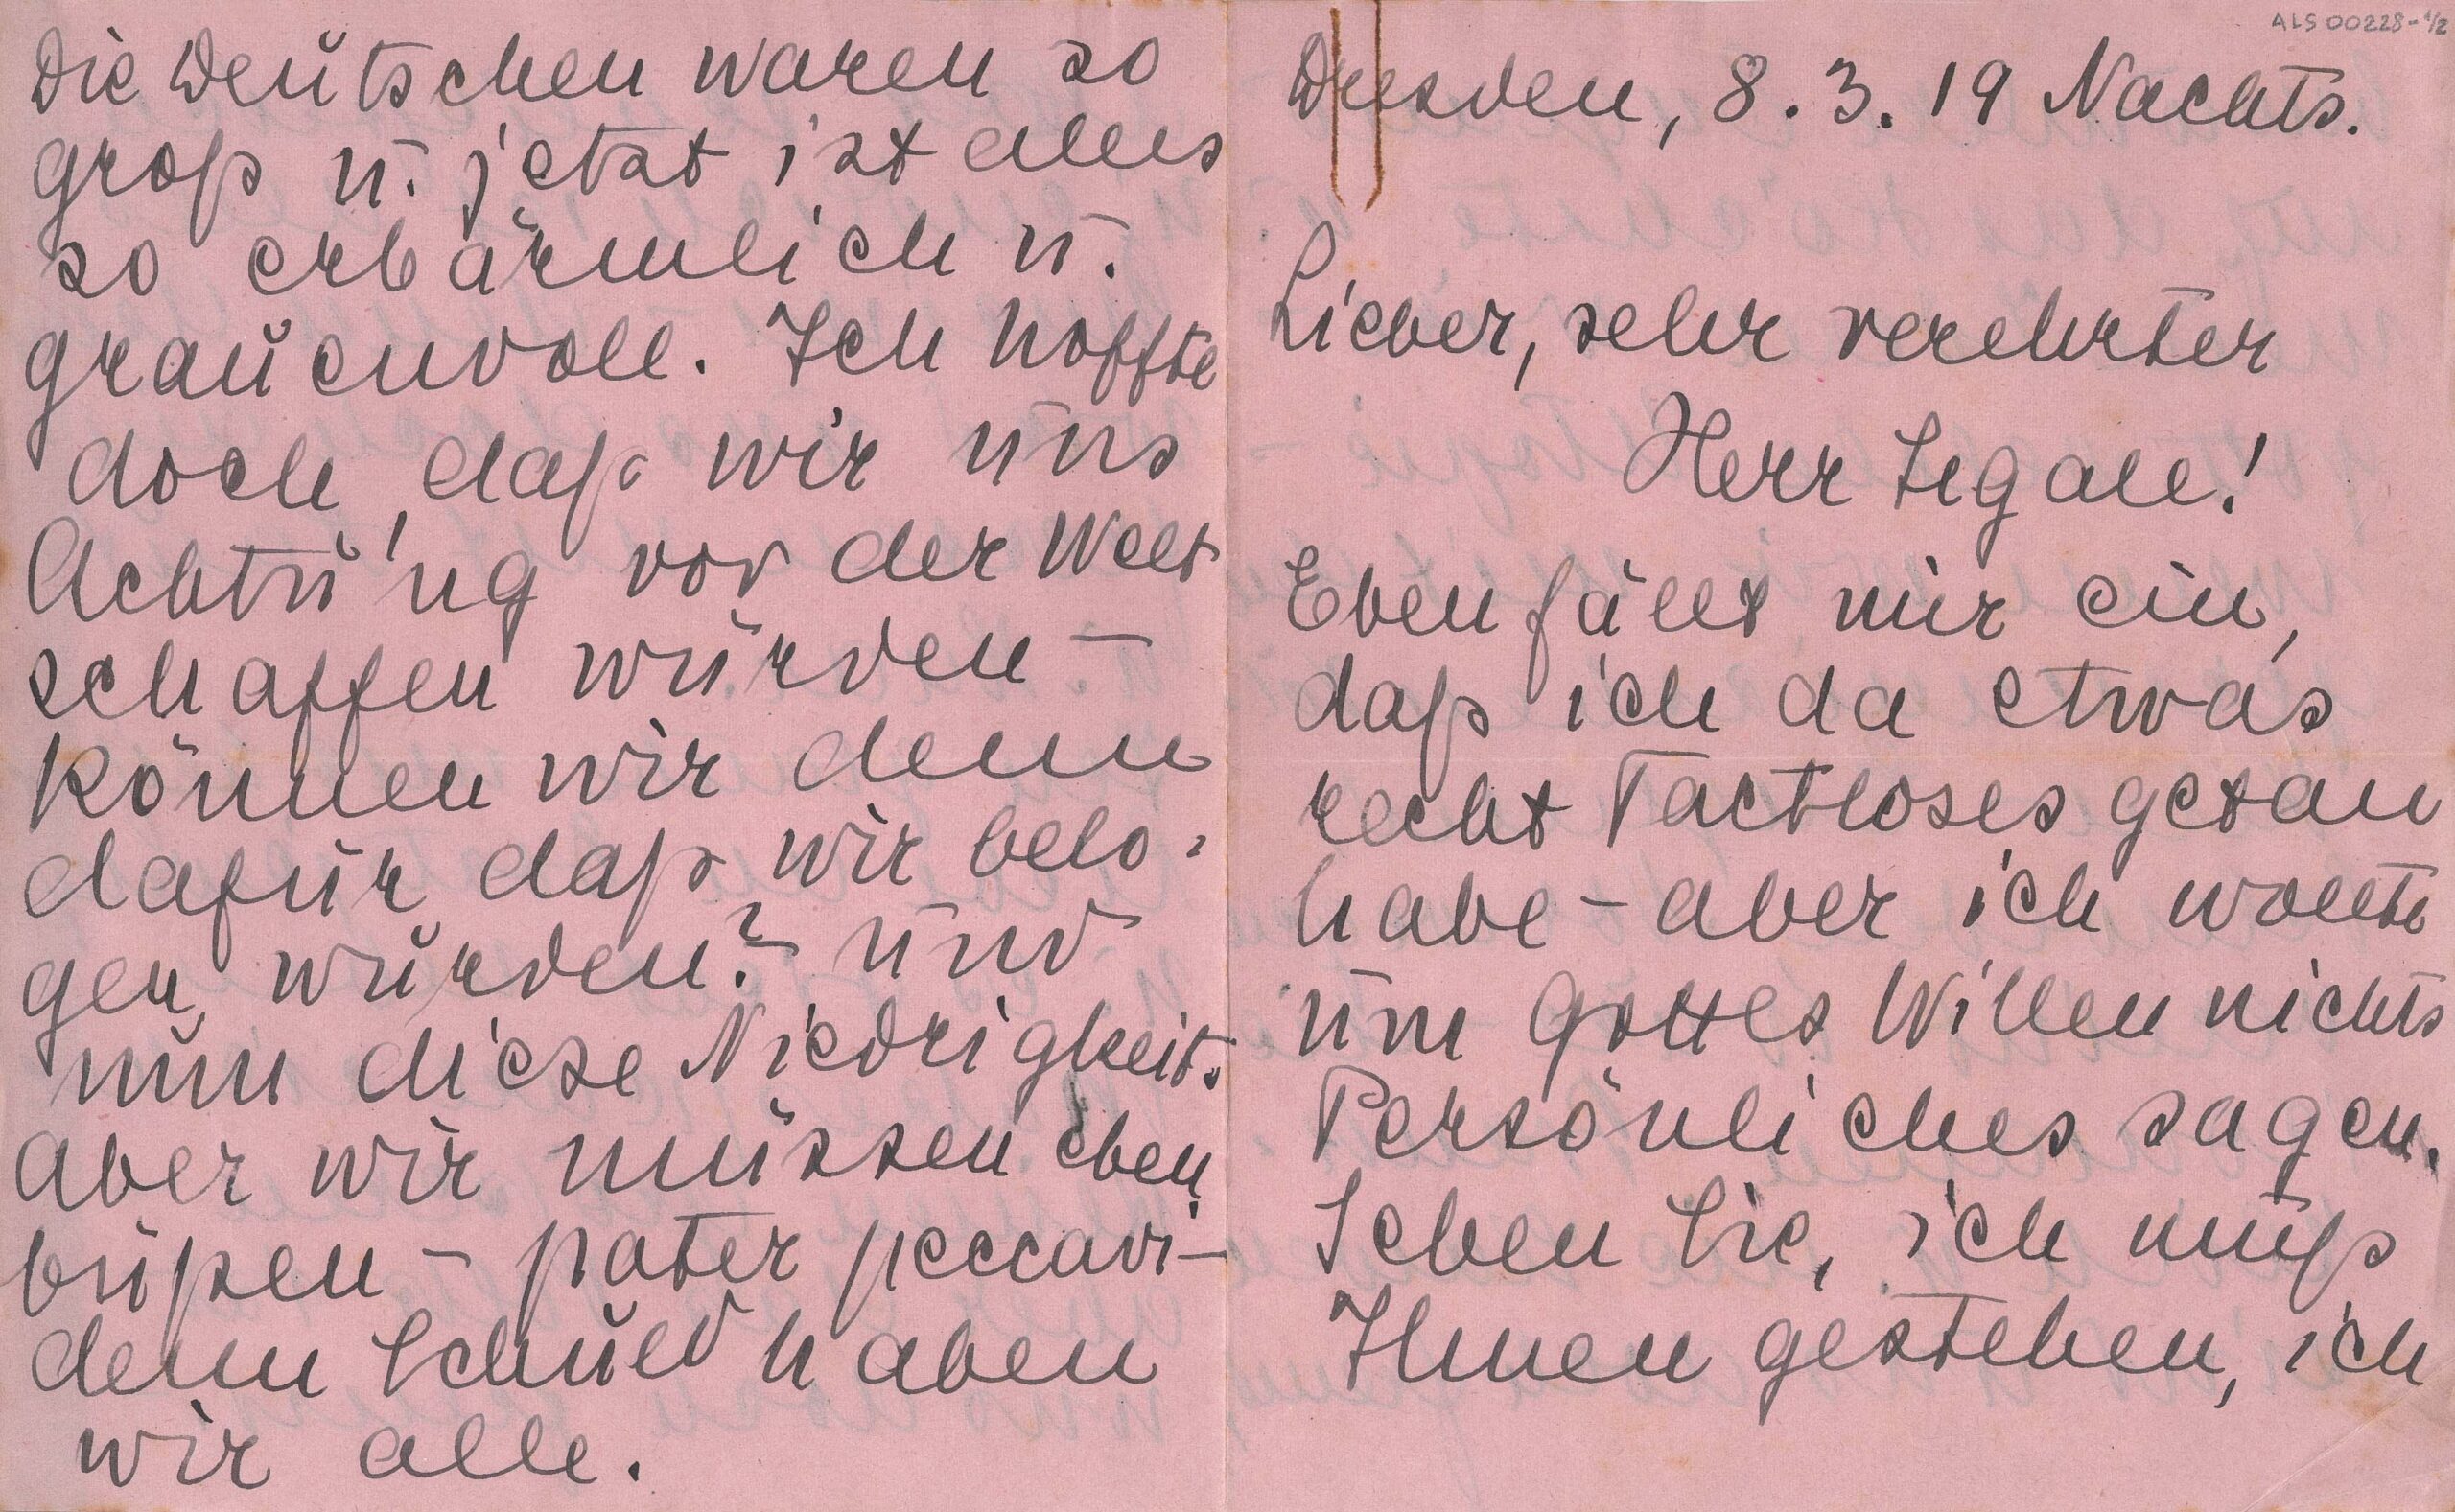 ALS 00228-1/2
Dresden, 8. 3. 19 Nachts.
Lieber, sehr verehrter
Herr Legall!
Eben fällt mir ein,
daß ich da etwas
recht Tactloses getan
habe – aber ich wollte
um Gottes Willen nichts
Persönliches sagen.
Sehen Sie, ich muß
Ihnen gestehen, ich
Die Deutschen waren so
groß u. jetzt ist alles
so erbärmlich u.
grauenvoll. Ich hoffte
doch, daß wir uns
Achtung vor der Welt
schaffen würden –
können wir denn
dafür, daß wir belo-
gen wurden? – und
nun diese Niedrigkeit.
Aber wir müssen eben
büßen – pater peccavi –
denn Schuld haben
wir alle.